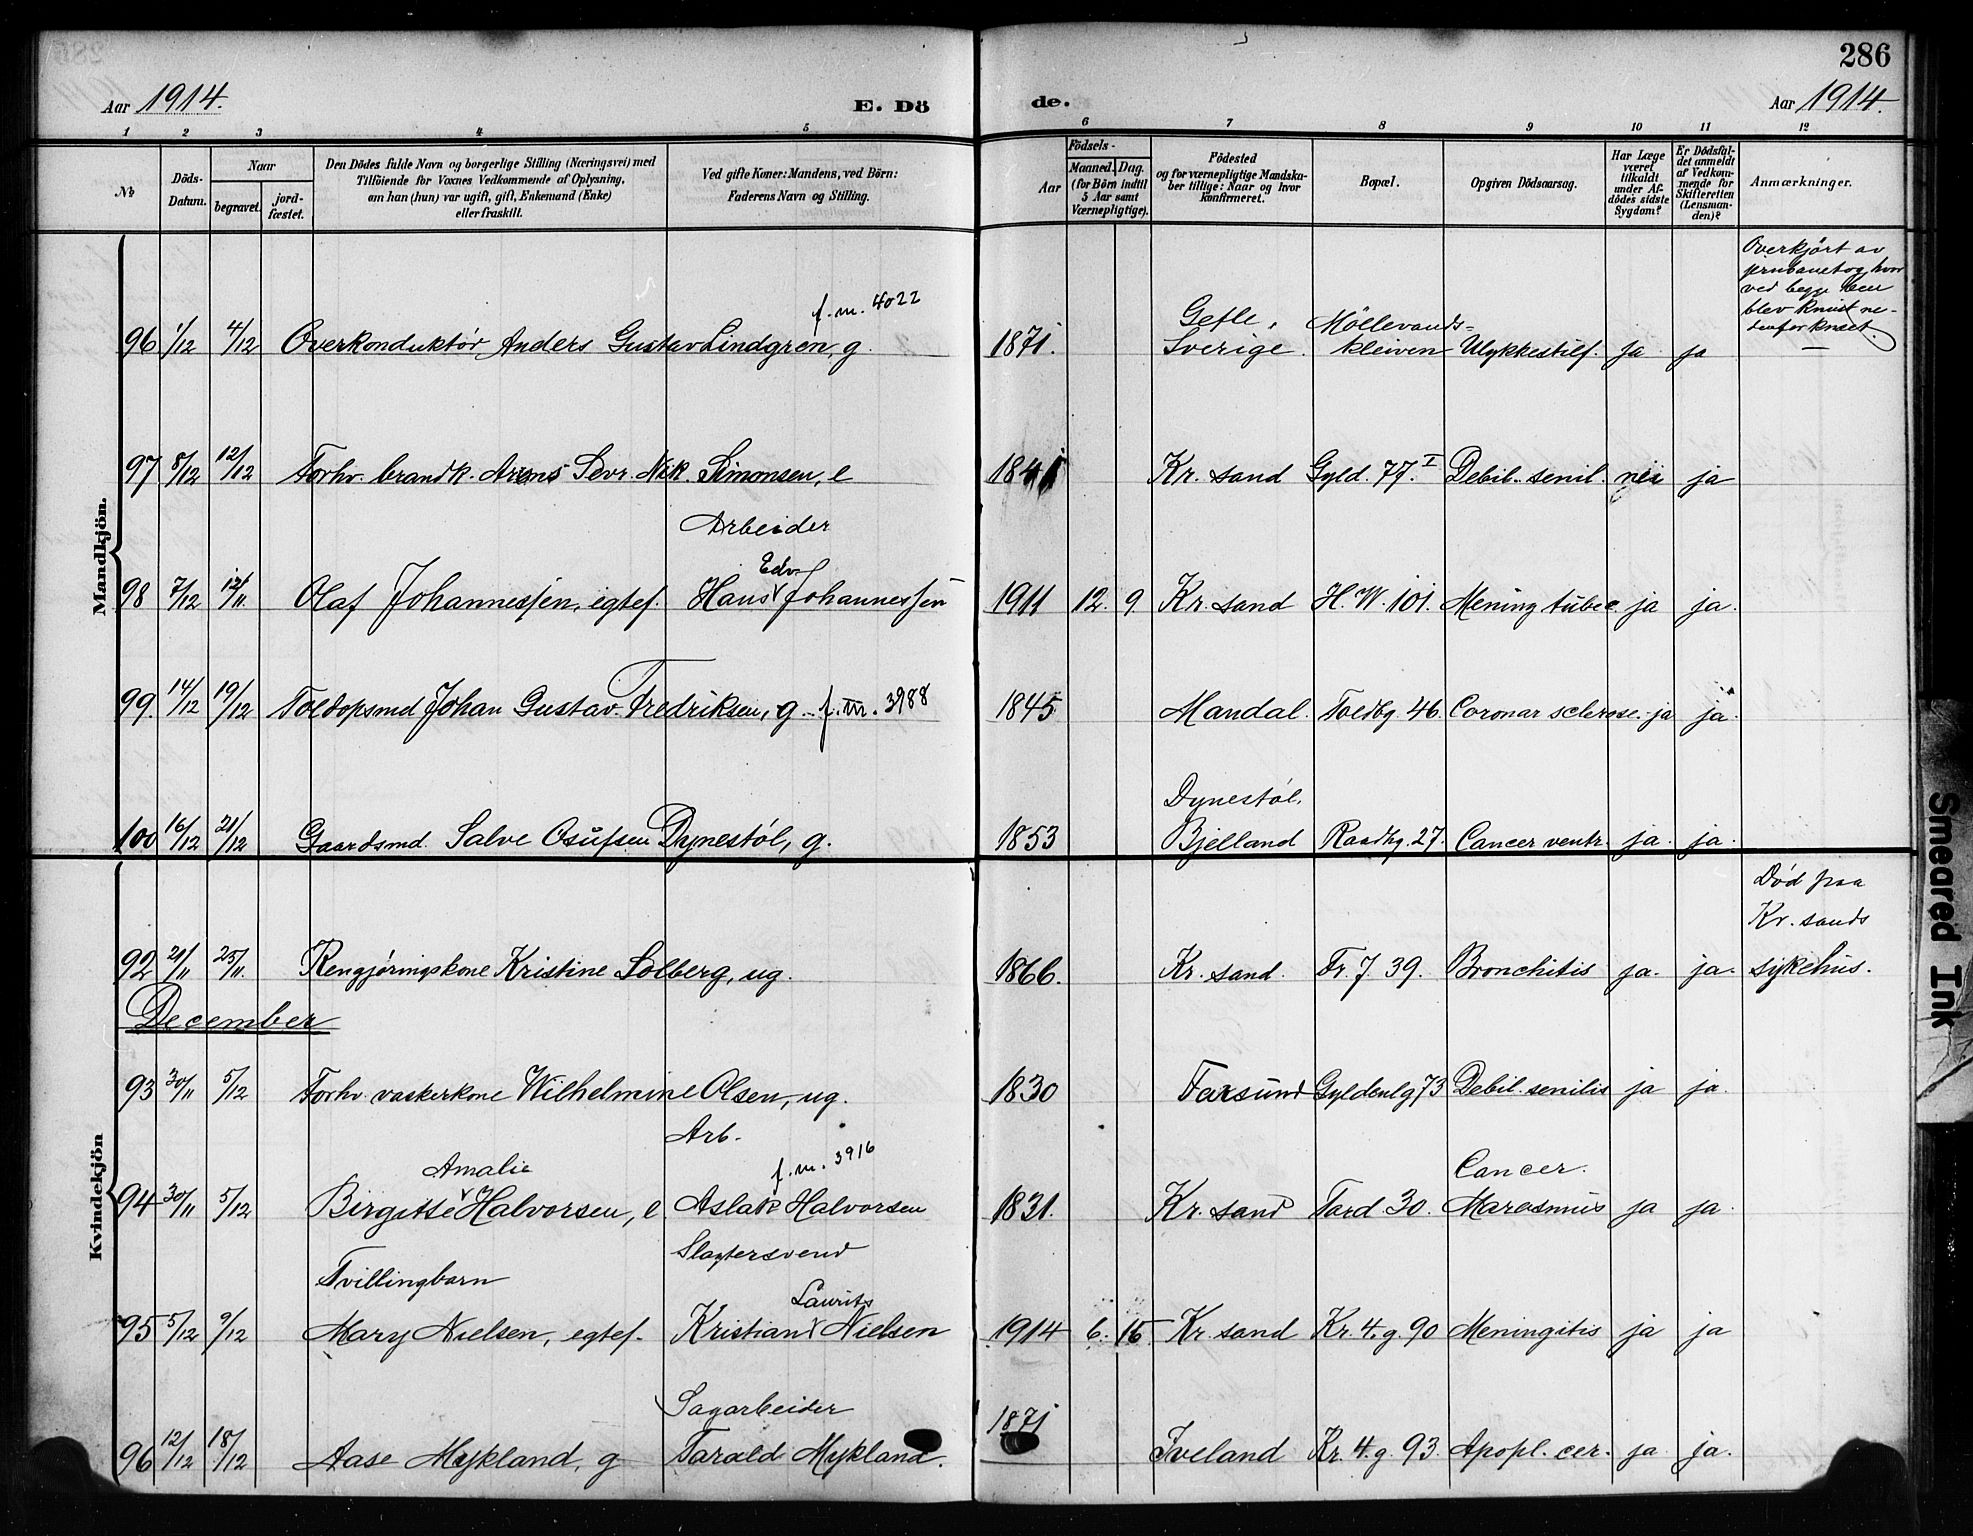 286
Aar 1914.
E. Dö
de.
Aar 1914.
1 2 3 4 5 6 7 8 9 10 11 12
No
Döds-Datum.
Naar
begravet.
jord-fæstet.
Den Dödes fulde Navn og borgerlige Stilling (Næringsvei) med
Tilföiende for Voxnes Vedkommende af Oplysning,
om han (hun) var ugift, gift, Enkemand (Enke)
eller fraskilt.
Ved gifte Koner: Mandens, ved Börn:
Faderens Navn og Stilling.
Födsels-
Aar
Maaned.
Dag.
(for Börn indtil
5 Aar samt
Værnepligtige).
Födested
og for værnepligtige Mandska-
ber tillige: Naar og hvor
konfirmeret.
Bopæl.
Opgiven Dödsaarsag.
Har Læge
været
tilkaldt
under Af-
dödes sidste
Sygdom?
Er Dödsfal-
det anmeldt
af Vedkom-
mende for
Skifteretten
(Lensman-
den)?
Anmærkninger.
Mandkjön.
Overkjört av
jernbanetog, hvor
ved begge ben
blev knust ne-
denfor knæet.
f. m. 4022
Gefle, Möllevands-
96 1/12 4/12 Overkonduktör Anders Gustav Lindgren, g. 1871. Sverige. kleiven Ulykkestilf. ja ja
97 8/12 12/12 Forhv. brandk. Arens Sevr. Nik. Simonsen, e 1841 Kr. sand Gyld. 77 I Debil. senil. nei ja
Arbeider
Edv.
98 7/12 12/11. Olaf Johannessen, egtef. Hans Johannessen 1911 12. 9. Kr. sand H. W. 101. Mening tuberc. ja ja.
99. 14/12 19/12 Toldopsmd Johan Gustav Fredriksen, g. f. m. 3988 1845 Mandal. Toldbg. 46. Coronar sclerose. ja ja.
Dynestöl,
100 16/12 21/12 Gaardsmd. Salve Osufsen Dynestöl, g. 1853 Bjelland Raadhg. 27. Cancer ventr. ja. ja.
Kvindekjön
Död paa
Kr. sands
92 21/11 25/11. Rengjöringskone Kristine Solberg, ug. 1866. Kr. sand. Fr. 7 39. Bronchitis ja. ja. sykehus.
December
93 30/11 5/12 Forhv. vaskerkone Wilhelmine Olsen, ug. 1830 Farsund Gyldenlg 73 Debil. senilis ja ja.
Arb.
f. m. 3916
Amalie Cancer.
94 30/11 5/12 Birgitte Halvorsen, e. Aslak Halvorsen 1831. Kr. sand Tord. 30. Marasmus ja ja.
Slagtersvend
Tvillingbarn
Laurits
95 5/12 9/12 Mary Nielsen, egtef. Kristian Nielsen 1914 6. 15. Kr. sand Kr. 4. g. 90 Meningitis ja ja
Sagarbeider
1871
96 12/12 18/12 Aase Mykland, g Tarald Mykland. Iveland Kr. 4. g. 93. Apopl. cer. ja ja.
Smeared Ink